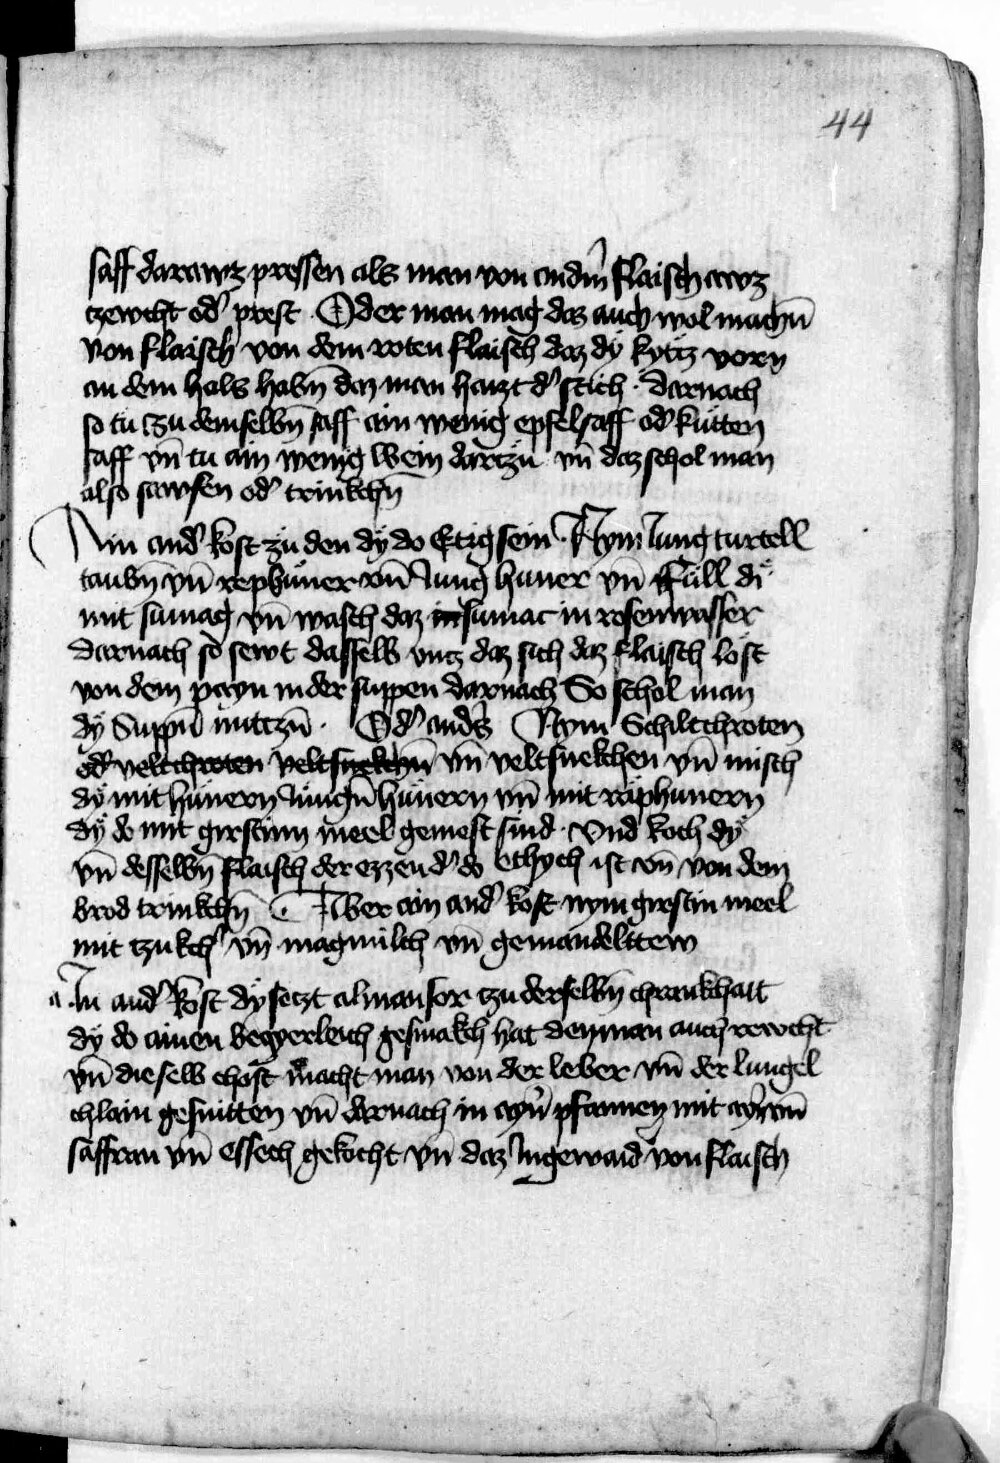 44
saff darawz pressen als man von andm̄ flaisch awz
tzewcht od' prest · Oder man mag daz auch wol machn̄
von flaisch von dem roten flaisch daz dÿ kytz vorn
an dem hals habn̄ daz man haizt d' stich · darnach
so tu tzu demselbn̄ saff ain wenig epfelsaff od' kütten
saff vn̄ tu ain wenig wein dartzu vn̄ daz schol man
also sawfen od' trinkchn̄
Ain and' kost zu den dÿ do Etig sein · Nym Jung turtell
taubn̄ vn̄ rephüner vn̄ Jung huner vn̄ Füll di
mit sumag vn̄ wasch daz in sumac in rosenwasser
darnach so sewt dasselb vntz daz sich daz flaisch löst
von dem payn in der suppen darnach So schol man
dÿ Suppn̄ nutczn̄ · Od' and's Nym Schiltchroten
od' veltchroten veltsnekchn̄ vn̄ veltsnekchen vn̄ misch
dÿ mit hünern Jungn̄ hünern vn̄ mit räphunern
dÿ do mit girstinn meel gemest sind · Vnd koch dÿ
vn̄ desselbn̄ flaisch der ezzen d' do ethych ist vn̄ von dem
brod trinkchn̄ · Aber ain and' kost nym girstin meel
mit tzukch' vn̄ magmilch vn̄ gemandelttem
a · In and' kost dÿ setzt almansor tzu derselbn̄ chrankhait
dÿ do ainen begyerleich gesmakch hat den man auch rewcht
vn̄ dieselb chost macht man von der leber vn̄ der lungel
chlain gesnitten vn̄ darnach in ayn' pfannen mit ayrn̄ vn̄
saffran vn̄ essech gekocht vn̄ daz Ingewaid von flaisch